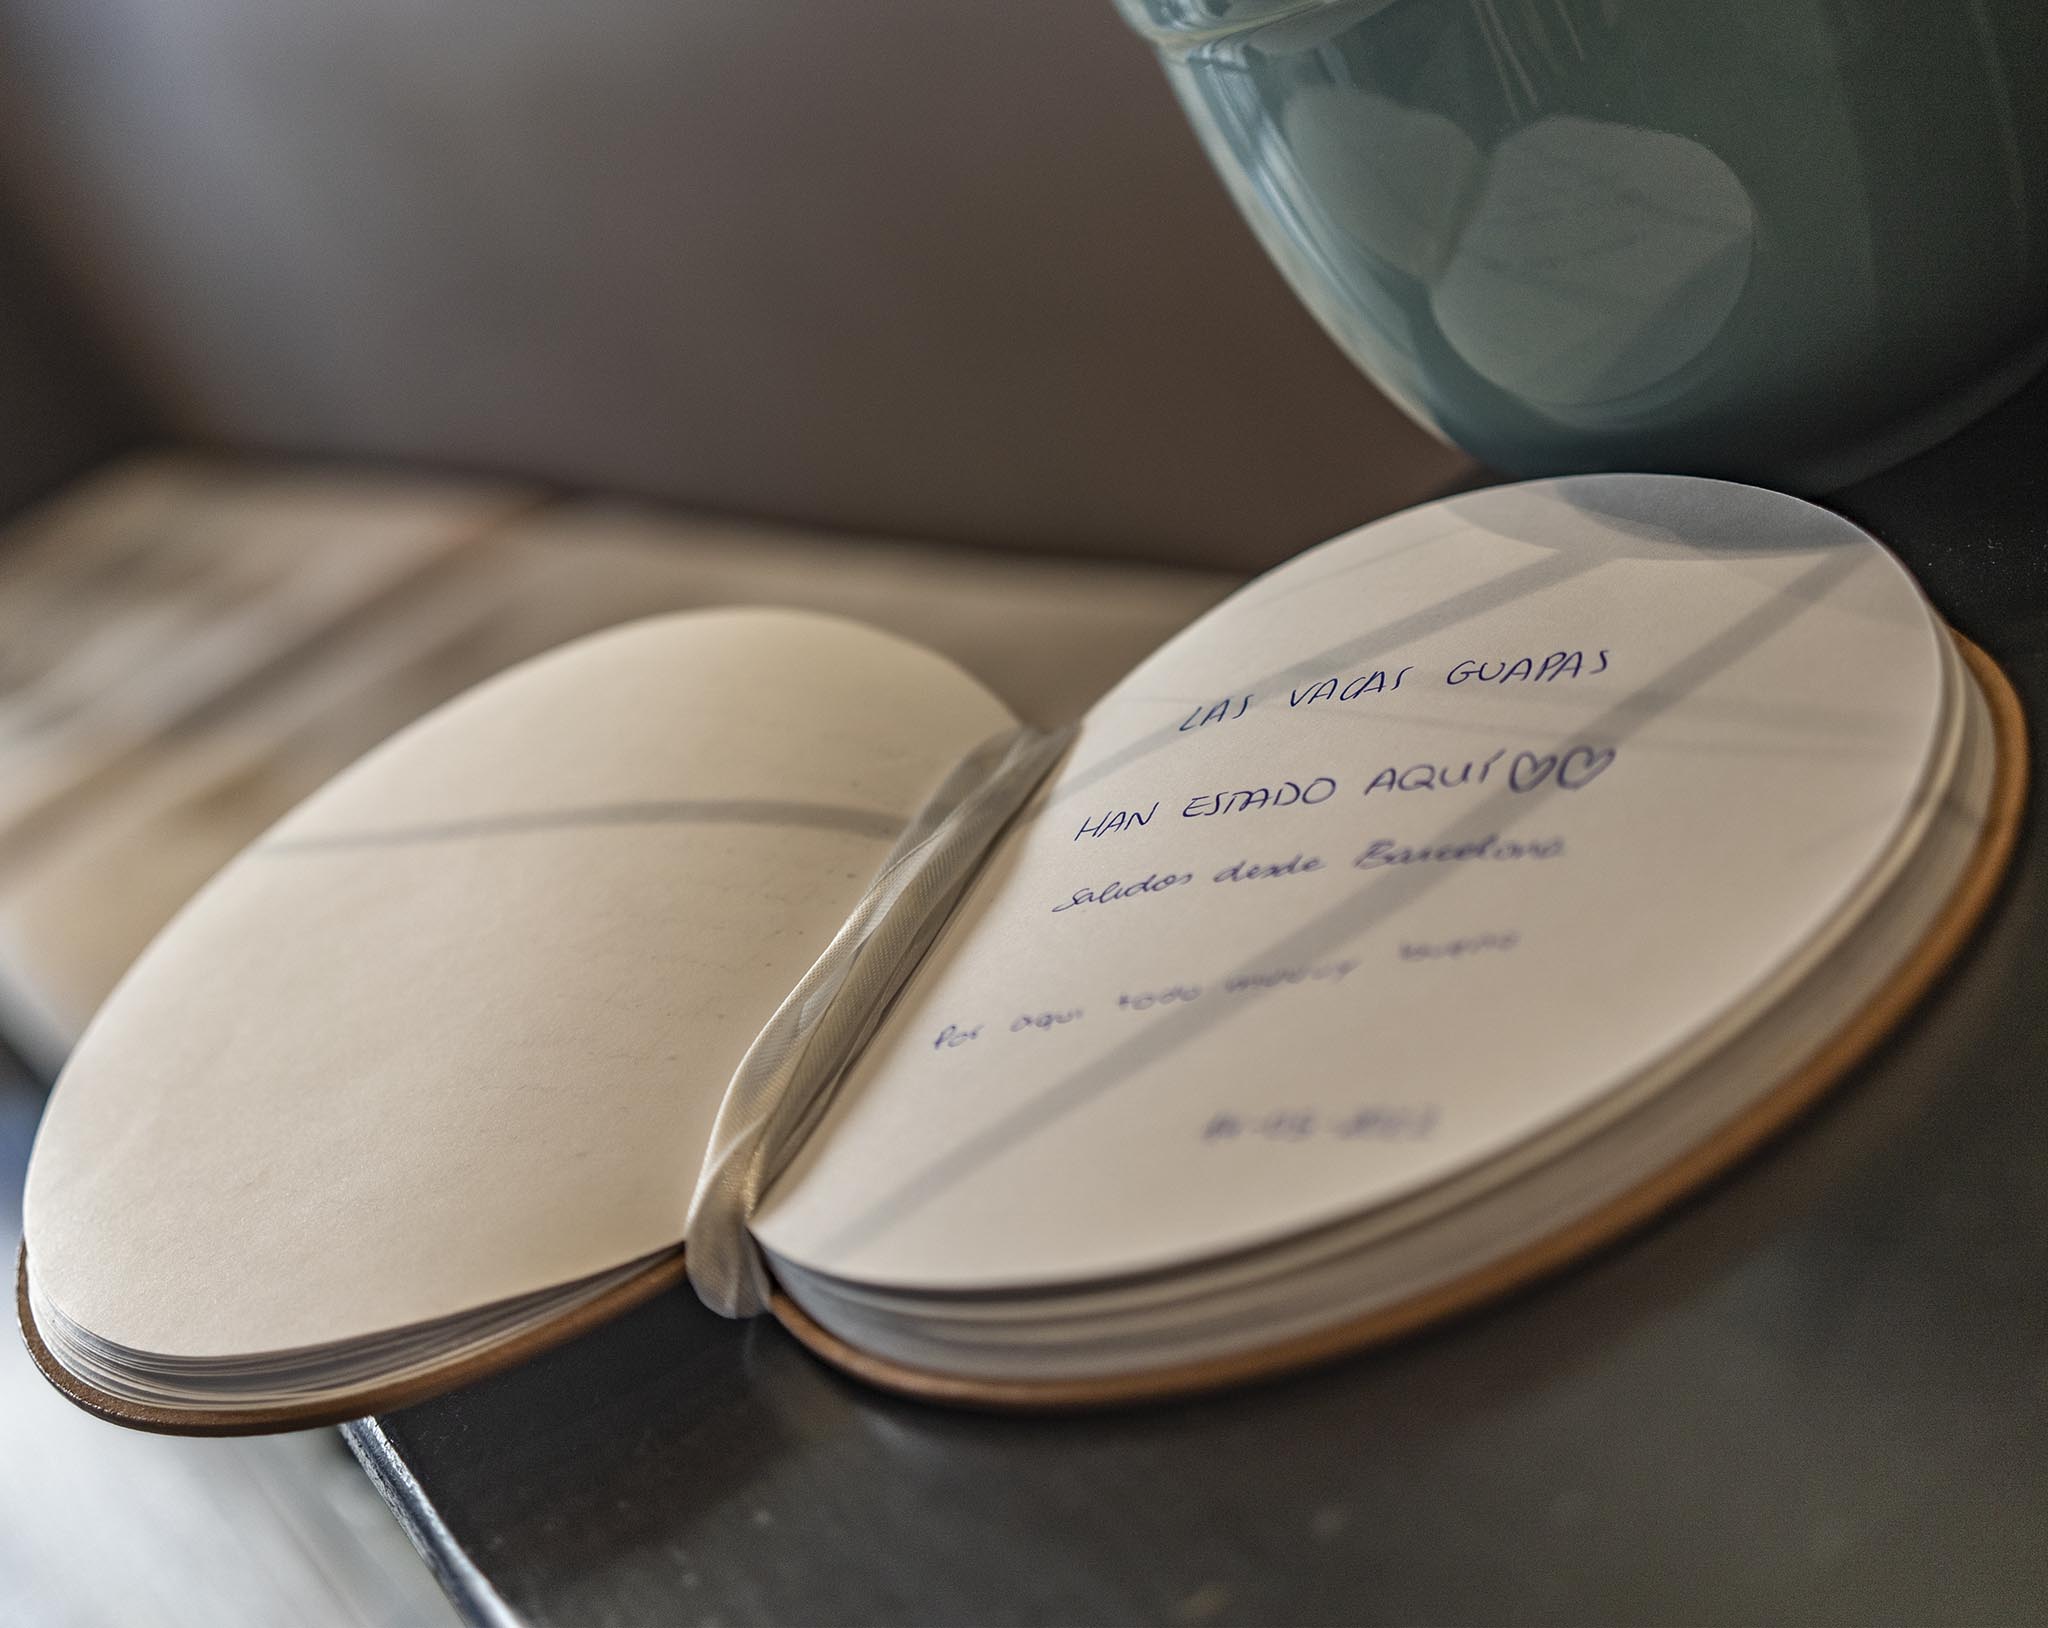 LAS VACAS GUAPAS
HAN ESTADO AQUÍ♡♡
Saludos desde Barcelona
Por aqui todo muuuy bueno